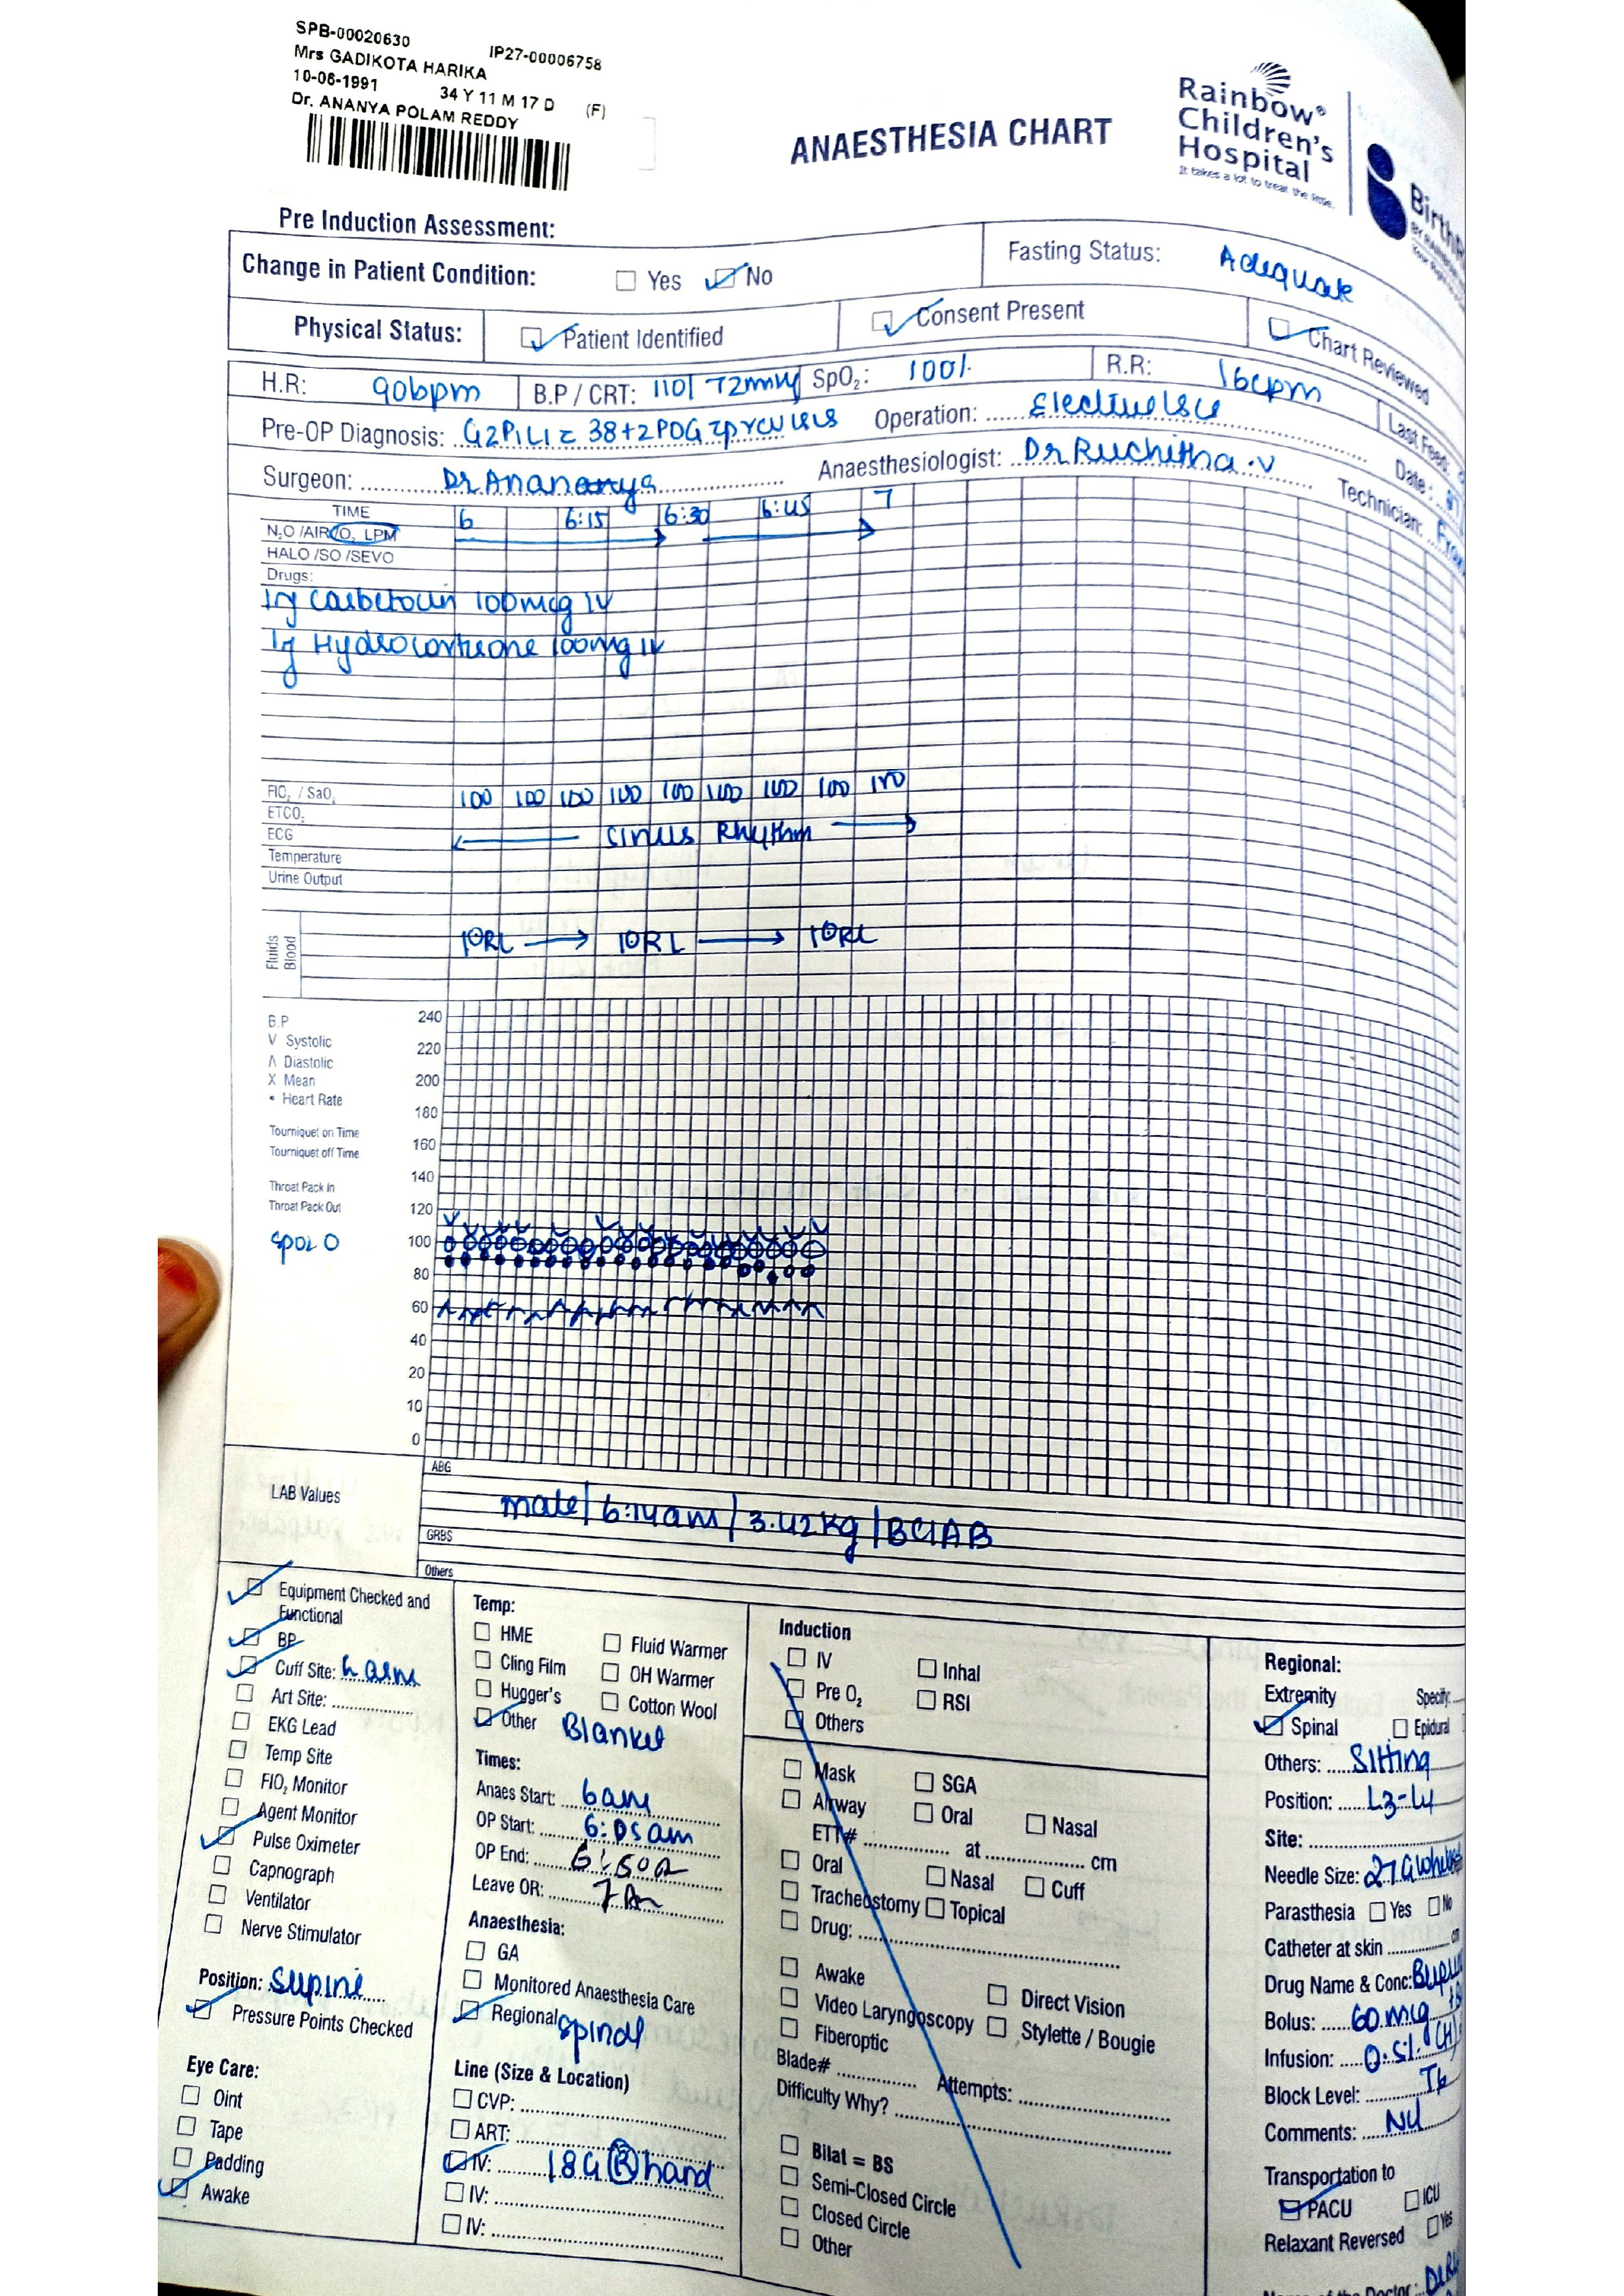 SPB-00020630 IP27-00006758
Mrs GADIKOTA HARIKA
10-06-1991 34 Y 11 M 17 D (F)
Dr. ANANYA POLAM REDDY
ANAESTHESIA CHART
Rainbow®
Children's
Hospital
It takes a lot to treat the little.
Pre Induction Assessment:
Change in Patient Condition: Yes No Fasting Status:
Physical Status: Patient Identified Consent Present Chart Reviewed
H.R: 90bpm B.P / CRT: 110/72mmHg SpO₂: 100% R.R: 16cpm
Pre-OP Diagnosis: G2P1L1 c 38+2POG Operation: Elective
Surgeon: Anaesthesiologist: Dr Ruchitha.V Technician:
Last Feed:
Date:
TIME 6 6:15 6:30 6:45 7
N₂O /AIR/O₂ LPM
HALO /SO /SEVO
Drugs:
100mcg IV
100mg IV
FIO₂ / SaO₂ 100 100 100 100 100 100 100 100 100
ETCO₂
ECG Sinus Rhythm
Temperature
Urine Output
Fluids
Blood
B.P
V Systolic
Λ Diastolic
X Mean
• Heart Rate
Tourniquet on Time
Tourniquet off Time
Throat Pack in
Throat Pack Out
SpO2 O
240
220
200
180
160
140
120
100
80
60
40
20
10
0
LAB Values
ABG
male/6:14am/3.42kg/BCIAB
GRBS
Others
Equipment Checked and
Functional
BP
Cuff Site:
Art Site:
EKG Lead
Temp Site
FIO₂ Monitor
Agent Monitor
Pulse Oximeter
Capnograph
Ventilator
Nerve Stimulator
Position: Supine
Pressure Points Checked
Eye Care:
Oint
Tape
Padding
Awake
Temp:
HME Fluid Warmer
Cling Film OH Warmer
Hugger's Cotton Wool
Other Blanket
Times:
Anaes Start: 6am
OP Start: 6:05am
OP End: 6:50a
Leave OR: 7 Am
Anaesthesia:
GA
Monitored Anaesthesia Care
Regional Spinal
Line (Size & Location)
CVP:
ART:
IV: 18G R hand
IV:
IV:
Induction
IV Inhal
Pre O₂ RSI
Others
Mask SGA
Airway Oral Nasal
ETT# at cm
Oral Nasal Cuff
Tracheostomy Topical
Drug:
Awake Direct Vision
Video Laryngoscopy Stylette / Bougie
Fiberoptic
Blade# Attempts:
Difficulty Why?
Bilat = BS
Semi-Closed Circle
Closed Circle
Other
Regional:
Extremity Specify:
Spinal Epidural
Others: Sitting
Position: L3-L4
Site:
Needle Size: 27G
Parasthesia Yes No
Catheter at skin cm
Drug Name & Conc:
Bolus: 60mcg
Infusion: 0.5% (H)
Block Level: T6
Comments: Nil
Transportation to
PACU ICU
Relaxant Reversed Yes